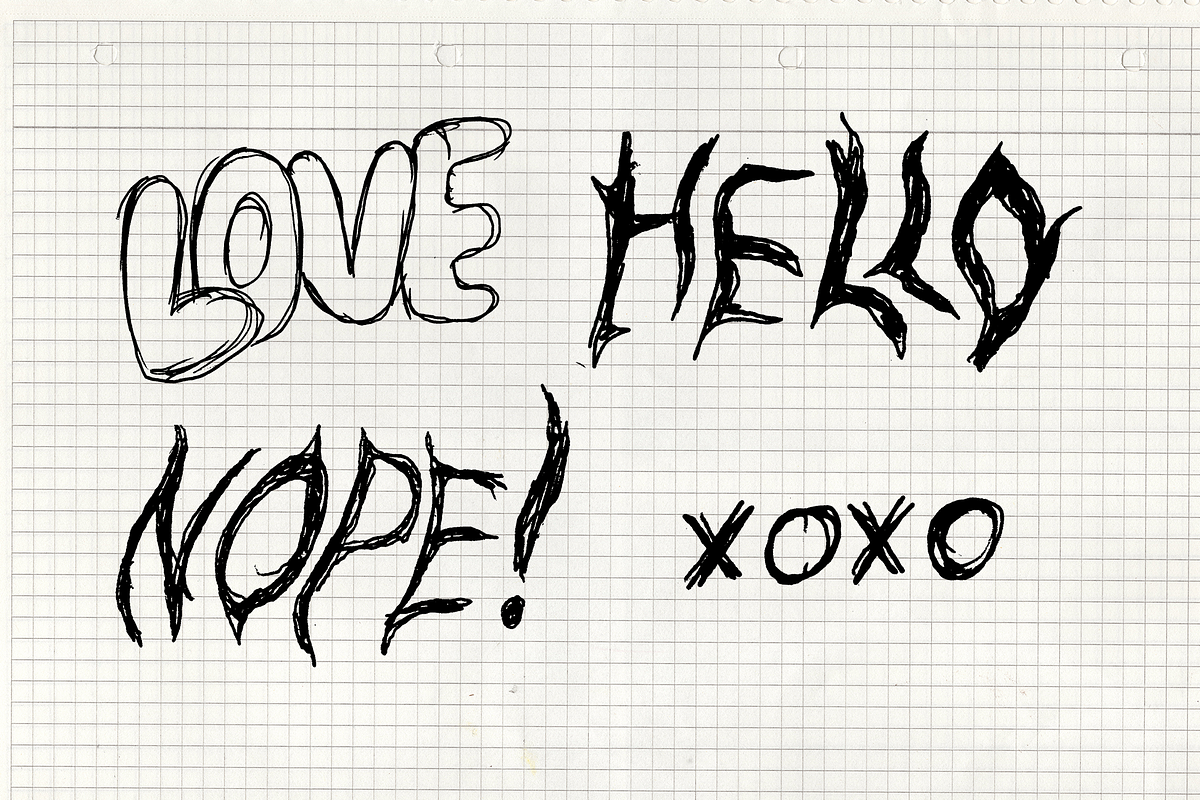 LOVE HELLO
NOPE! XOXO